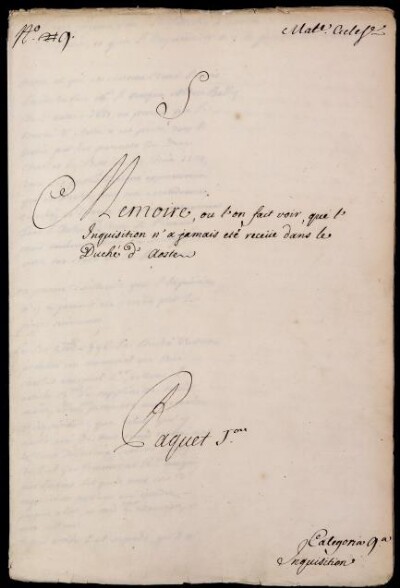 N.º 9.
Mat.e Eccles.e
S
Memoire, ou l'on fait voir, que l'
Inquisition n'a jamais eté receüe dans le
Duché d'Aoste
Paquet 1.er
Categoria 9.a
Inquisition